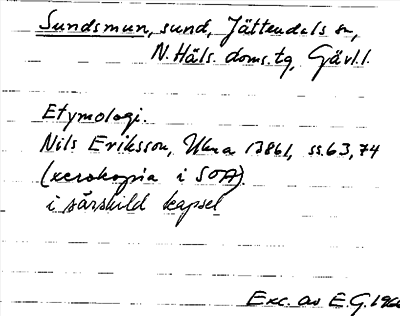 Sundsmun, sund, Jättendals sn,
N. Häls. doms.tg, Gävl.l.
Etymologi.
Nils Eriksson, Ulma 13861, ss. 63, 74
(xerokopia i SOA).
i särskild kapsel
Exc. av E.G. 196